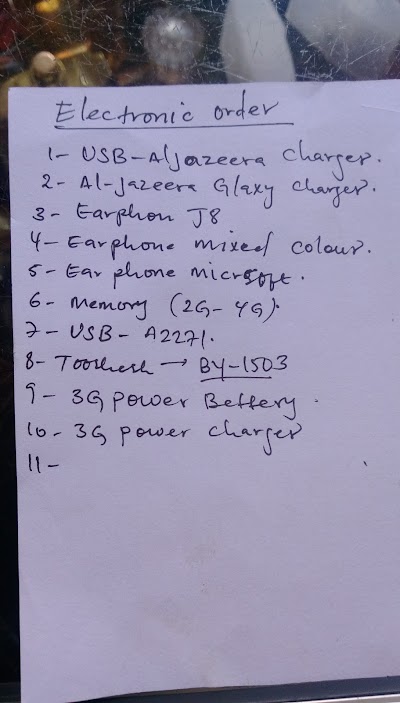 Electronic order
1- USB-Aljazeera charger.
2- Al-Jazeera Glaxy charger.
3- Earphon J8
4- Earphone mixed colour.
5- Ear phone microsoft.
6- Memory (2G-4G).
7- USB-A2271.
8- → BY-1503
9- 3G power Bettery.
10- 3G power charger
11-